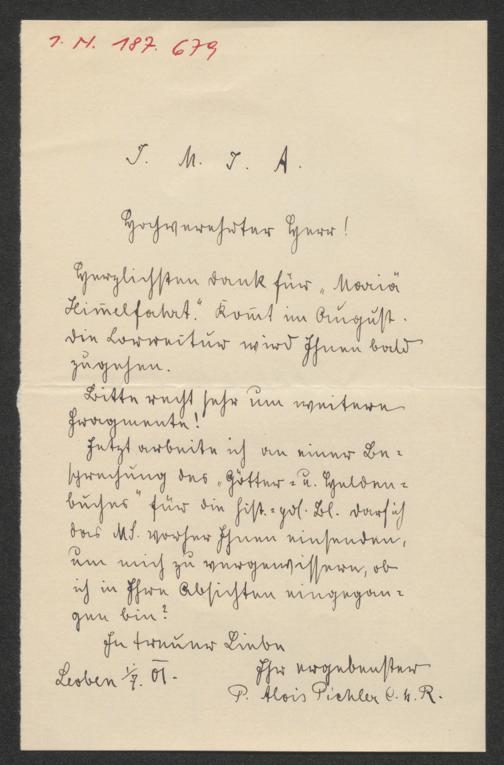 I. N. 187.679
J. M. J. A.
Hochverehrter Herr!
Herzlichsten Dank für „Mariä
Him̅elfahrt." Kom̅t im August.
Die Correctur wird Ihnen bald
zugehen.
Bitte recht sehr um weitere
Fragmente!
Jetzt arbeite ich an einer Be=
sprechung des „Götter= u. Helden=
buches" für die hist.=pol. Bl. Darf ich
das MS. vorher Ihnen einsenden,
um mich zu vergewissern, ob
ich in Ihre Absichten eingegan=
gen bin?
In treuer Liebe
Ihr ergebenster
Leoben 1/7. 01.
P. Alois Pichler C. ss. R.